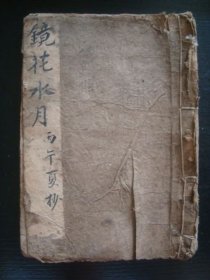 鏡花水月
丙午夏抄